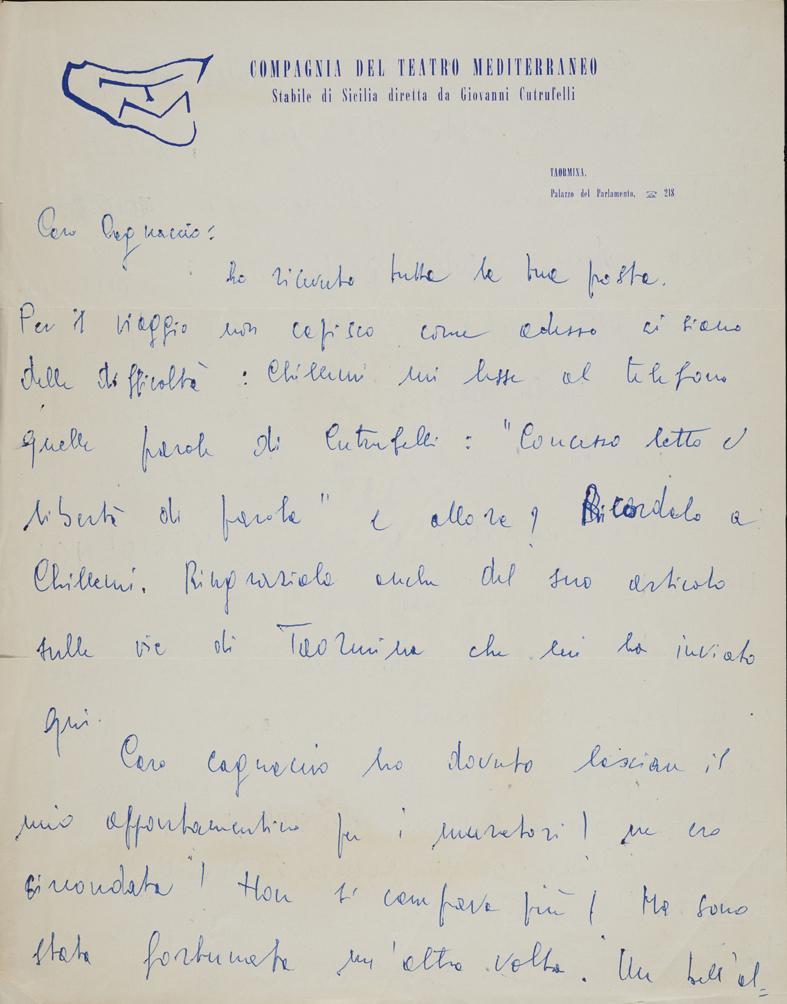 COMPAGNIA DEL TEATRO MEDITERRANEO
Stabile di Sicilia diretta da Giovanni Cutrufelli
TAORMINA.
Palazzo del Parlamento, ☏ 218
Caro Cagnaccio:
ho ricevuto tutta la tua posta.
Per il viaggio non capisco come adesso ci siano
delle difficoltà : Chillemi mi lesse al telefono
quelle parole di Cutrufelli : "Concesso letto e
libertà di parola" e allora ? Ricordalo a
Chillemi. Ringrazialo anche del suo articolo
sulle vie di Taormina che mi ha inviato
qui.
Caro cagnaccio ho dovuto lasciare il
mio appartamentino per i muratori ! ne ero
circondata ! Non si campava più ! Ma sono
stata fortunata un'altra volta. Un bell'al=